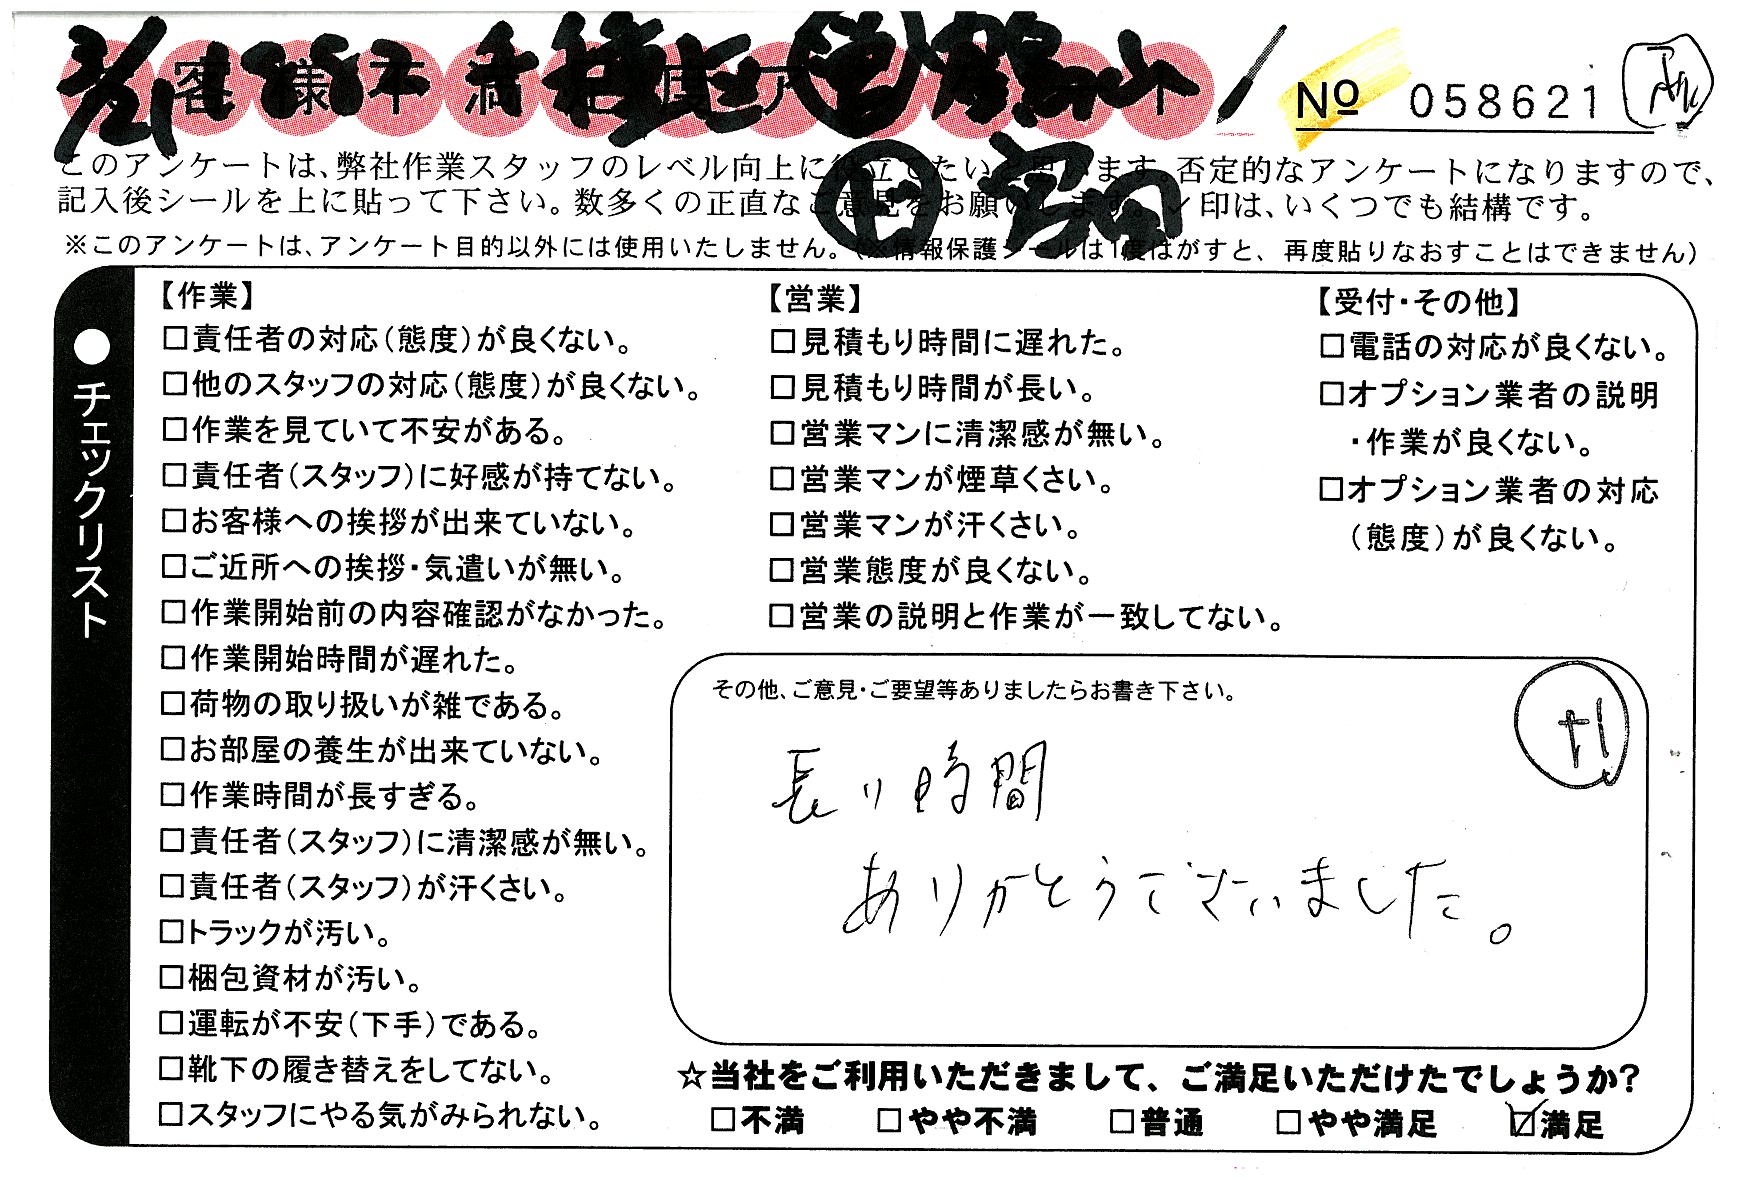 3/21
客様不満足度ア
№ 058621
このアンケートは、弊社作業スタッフのレベル向上に役立てたいと思います。否定的なアンケートになりますので、
記入後シールを上に貼って下さい。数多くの正直なご意見をお願いします。✓印は、いくつでも結構です。
※このアンケートは、アンケート目的以外には使用いたしません。(※情報保護シールは1度はがすと、再度貼りなおすことはできません)
●チェックリスト
【作業】
□責任者の対応(態度)が良くない。
□他のスタッフの対応(態度)が良くない。
□作業を見ていて不安がある。
□責任者(スタッフ)に好感が持てない。
□お客様への挨拶が出来ていない。
□ご近所への挨拶・気遣いが無い。
□作業開始前の内容確認がなかった。
□作業開始時間が遅れた。
□荷物の取り扱いが雑である。
□お部屋の養生が出来ていない。
□作業時間が長すぎる。
□責任者(スタッフ)に清潔感が無い。
□責任者(スタッフ)が汗くさい。
□トラックが汚い。
□梱包資材が汚い。
□運転が不安(下手)である。
□靴下の履き替えをしてない。
□スタッフにやる気がみられない。
【営業】
□見積もり時間に遅れた。
□見積もり時間が長い。
□営業マンに清潔感が無い。
□営業マンが煙草くさい。
□営業マンが汗くさい。
□営業態度が良くない。
□営業の説明と作業が一致してない。
【受付・その他】
□電話の対応が良くない。
□オプション業者の説明
・作業が良くない。
□オプション業者の対応
(態度)が良くない。
その他、ご意見・ご要望等ありましたらお書き下さい。
長い時間
ありがとうございました。
☆当社をご利用いただきまして、ご満足いただけたでしょうか?
□不満 □やや不満 □普通 □やや満足 ☑満足